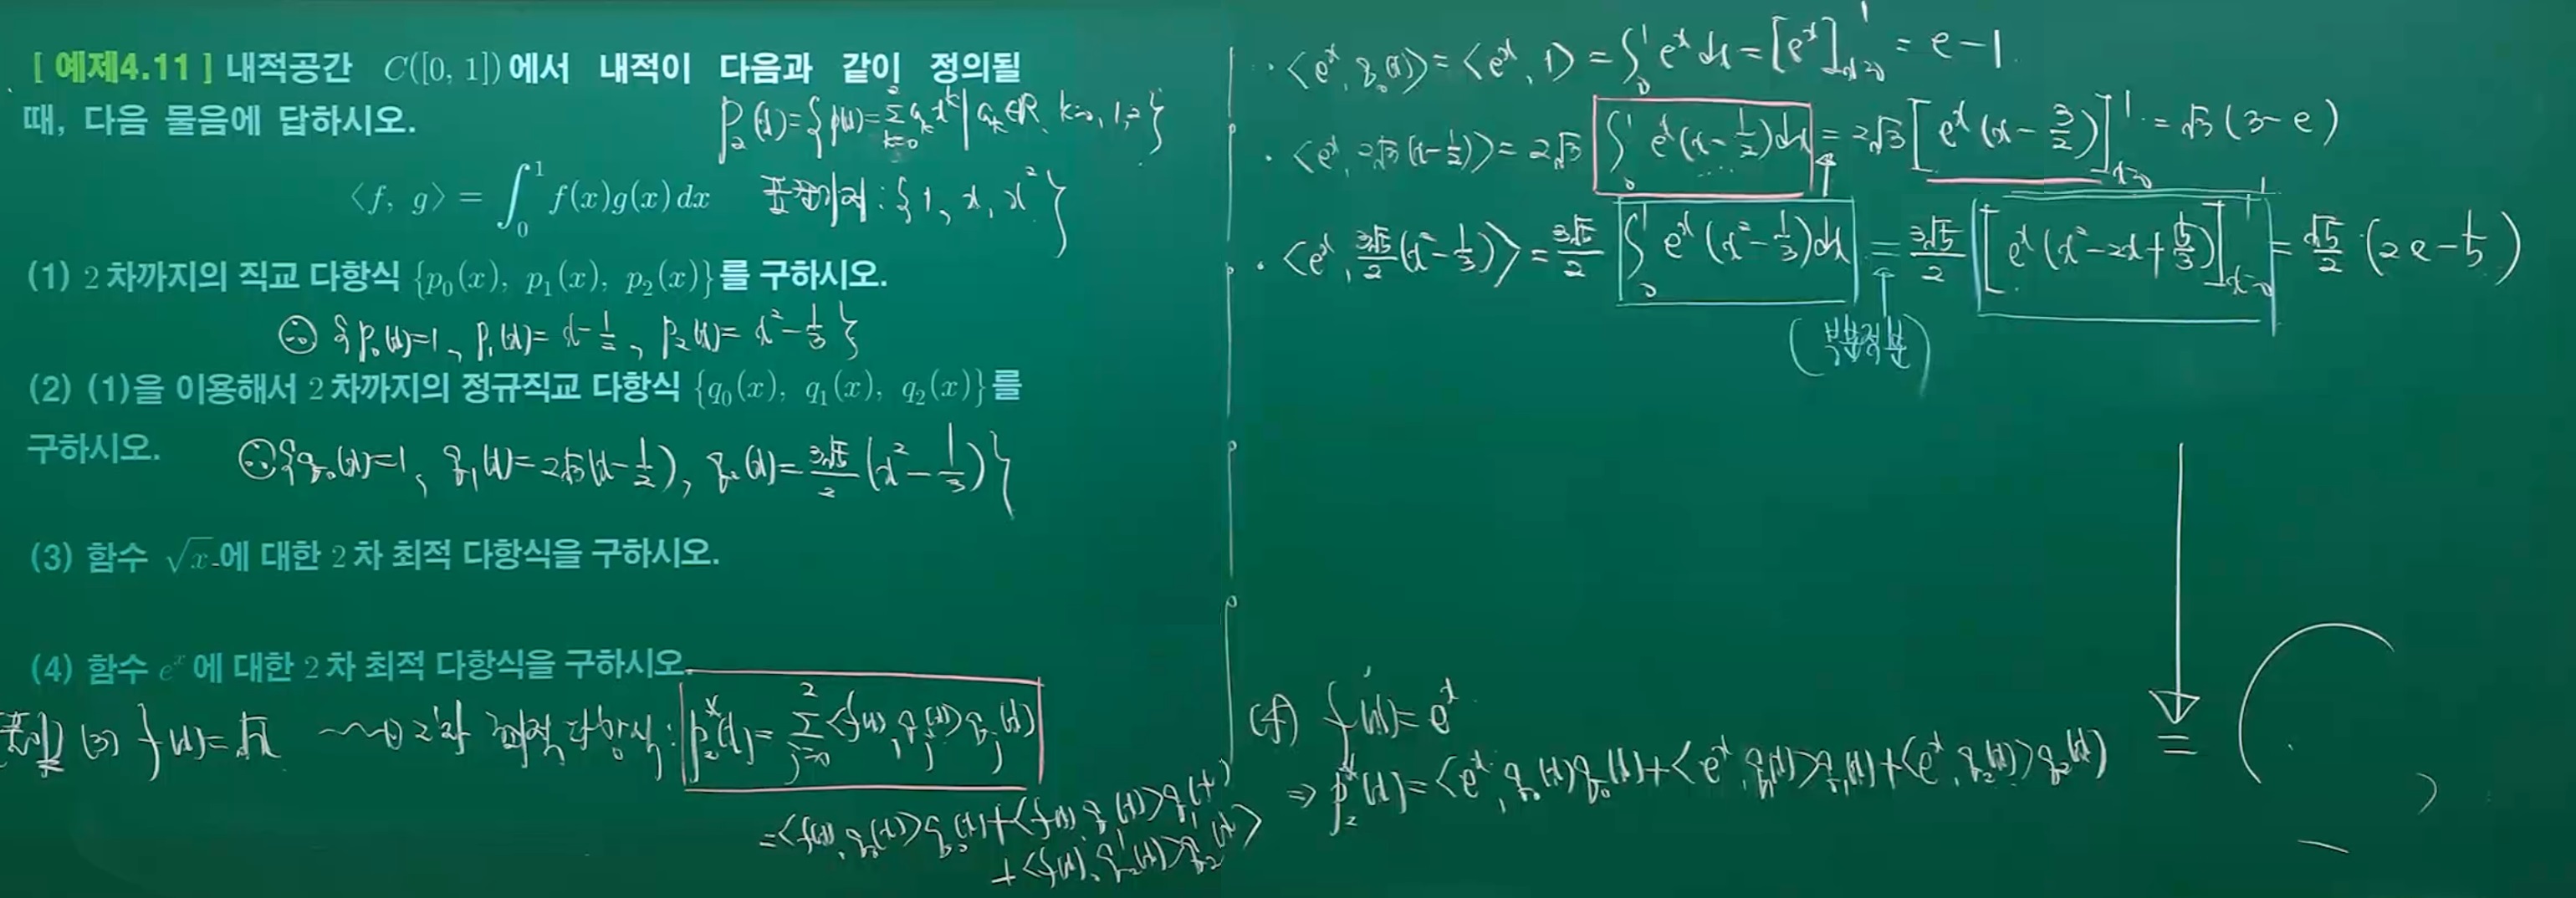 [ 예제4.11 ] 내적공간 C([0, 1])에서 내적이 다음과 같이 정의될
때, 다음 물음에 답하시오.
P₂(x)={p(x)=∑_{k=0}^{2} a_k x^k | a_k∈R, k=0, 1, 2}
⟨f, g⟩ = ∫₀¹ f(x)g(x) dx
표준기저 : {1, x, x²}
(1) 2차까지의 직교 다항식 {p₀(x), p₁(x), p₂(x)}를 구하시오.
∴ {p₀(x)=1, p₁(x)= x-1/2, p₂(x)= x²-1/3}
(2) (1)을 이용해서 2차까지의 정규직교 다항식 {q₀(x), q₁(x), q₂(x)}를
구하시오.
∴ {q₀(x)=1, q₁(x)=2√3(x-1/2), q₂(x)=3√5/2 (x²-1/3)}
(3) 함수 √x 에 대한 2차 최적 다항식을 구하시오.
(4) 함수 eˣ에 대한 2차 최적 다항식을 구하시오.
풀이) (3) f(x)=√x ⇝ 2차 최적다항식 : p₂*(x)=∑_{j=0}^{2}<f(x), q_j(x)>q_j(x)
=<f(x), q₀(x)>q₀(x)+<f(x), q₁(x)>q₁(x)
+<f(x), q₂(x)>q₂(x)
· <eˣ, q₀(x)>=<eˣ, 1>=∫₀¹ eˣ dx=[eˣ]_{x=0}^{1}=e-1
· <eˣ, 2√3(x-1/2)>=2√3 ∫₀¹ eˣ(x-1/2)dx=2√3[eˣ(x-3/2)]_{x=0}^{1}=√3(3-e)
· <eˣ, 3√5/2(x²-1/3)>=3√5/2 ∫₀¹ eˣ(x²-1/3)dx=3√5/2[eˣ(x²-2x+5/3)]_{x=0}^{1}=√5/2·(2e-5)
(부분적분)
(4) f(x)=eˣ
⇒ p₂*(x)=<eˣ, q₀(x)>q₀(x)+<eˣ, q₁(x)>q₁(x)+<eˣ, q₂(x)>q₂(x)
=